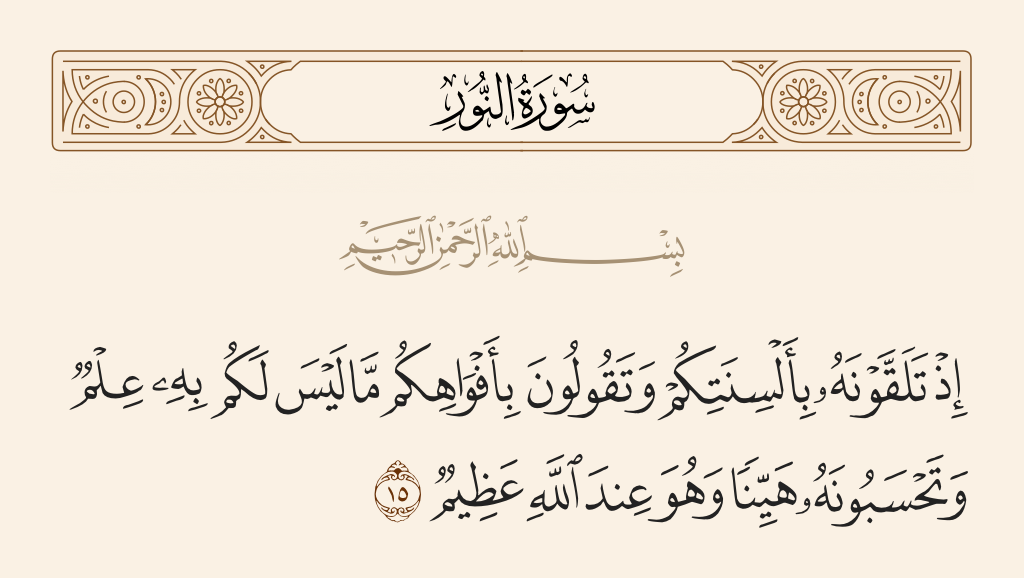 سُورَةُ النُّورِ
بِسْمِ ٱللَّهِ ٱلرَّحْمَٰنِ ٱلرَّحِيمِ
إِذْ تَلَقَّوْنَهُۥ بِأَلْسِنَتِكُمْ وَتَقُولُونَ بِأَفْوَاهِكُم مَّا لَيْسَ لَكُم بِهِۦ عِلْمٌ
وَتَحْسَبُونَهُۥ هَيِّنًا وَهُوَ عِندَ ٱللَّهِ عَظِيمٌ ١٥